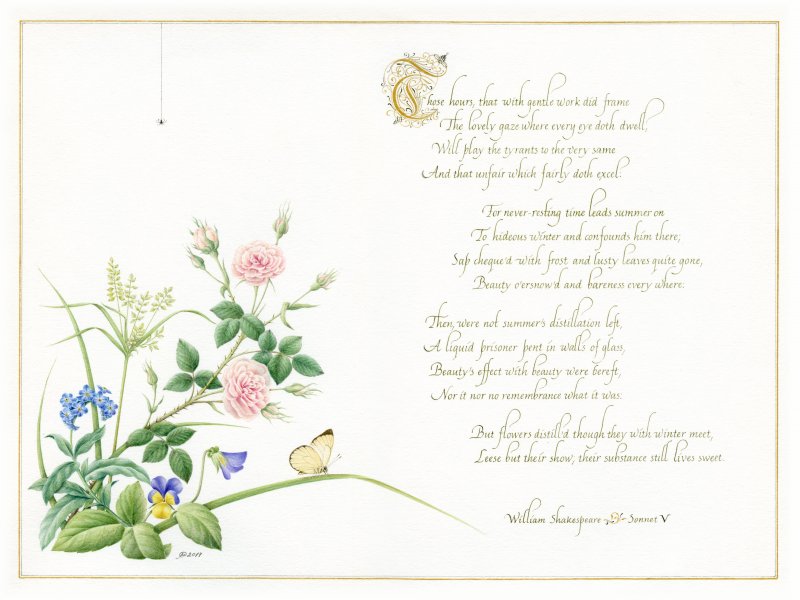 Those hours, that with gentle work did frame
The lovely gaze where every eye doth dwell,
Will play the tyrants to the very same
And that unfair which fairly doth excel:
For never-resting time leads summer on
To hideous winter and confounds him there;
Sap cheque'd with frost and lusty leaves quite gone,
Beauty o'ersnow'd and bareness every where:
Then, were not summer's distillation left,
A liquid prisoner pent in walls of glass,
Beauty's effect with beauty were bereft,
Nor it nor no remembrance what it was:
But flowers distill'd though they with winter meet,
Leese but their show; their substance still lives sweet.
William Shakespeare Sonnet V
2019